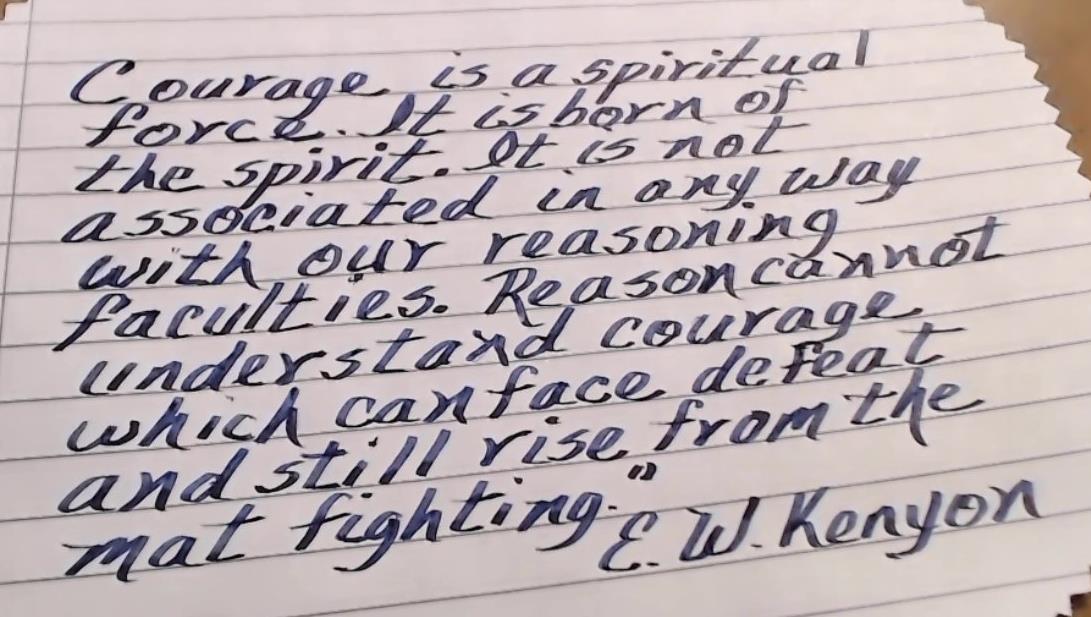 Courage is a spiritual
force. It is born of
the spirit. It is not
associated in any way
with our reasoning
faculties. Reason cannot
understand courage
which can face defeat
and still rise from the
mat fighting." E. W. Kenyon